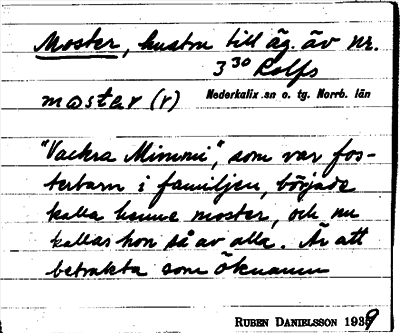 Moster, hustru till äg. av nr.
3³⁰ Rolfs
mostər (r) Nederkalix sn o. tg. Norrb. län
"Vackra Mimmi", som var fos-
terbarn i familjen, började
kalla henne moster, och nu
kallas hon så av alla. Är att
betrakta som öknamn
RUBEN DANIELSSON 1939